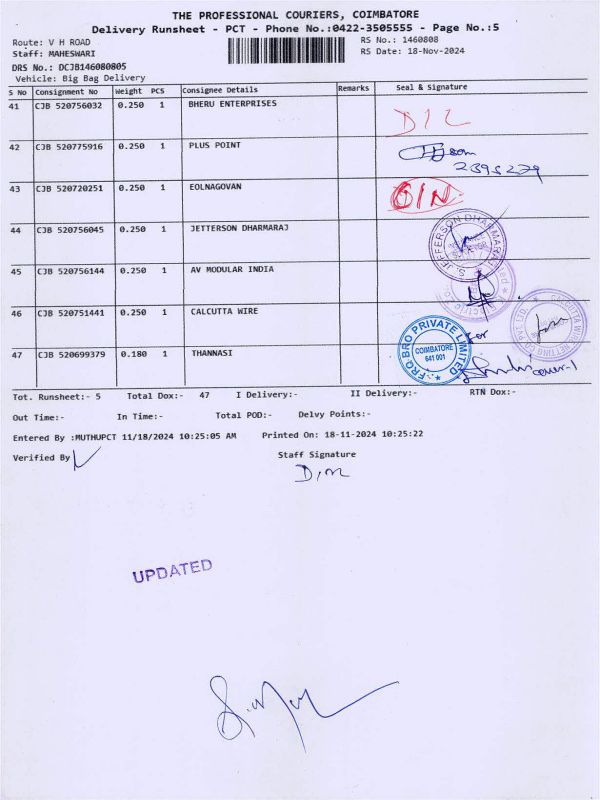 THE PROFESSIONAL COURIERS, COIMBATORE
Delivery Runsheet - PCT - Phone No.:0422-3505555 - Page No.:5
Route: V H ROAD
RS No.: 1460808
Staff: MAHESWARI
RS Date: 18-Nov-2024
DRS No.: DCJB146080805
Vehicle: Big Bag Delivery
S No Consignment No Weight PCS Consignee Details Remarks Seal & Signature
41 CJB 520756032 0.250 1 BHERU ENTERPRISES
D/L
42 CJB 520775916 0.250 1 PLUS POINT
43 CJB 520720251 0.250 1 EOLNAGOVAN
44 CJB 520756045 0.250 1 JETTERSON DHARMARAJ
S. JEFFERSON DHARMARAJ
SURVEYOR
45 CJB 520756144 0.250 1 AV MODULAR INDIA
46 CJB 520751441 0.250 1 CALCUTTA WIRE
CALCUTTA WIRE NETTING CO PVT LTD.
for
47 CJB 520699379 0.180 1 THANNASI
FRQ BRO PRIVATE LIMITED
COIMBATORE
641 001
Tot. Runsheet:- 5 Total Dox:- 47 I Delivery:- II Delivery:- RTN Dox:-
Out Time:- In Time:- Total POD:- Delvy Points:-
Entered By :MUTHUPCT 11/18/2024 10:25:05 AM Printed On: 18-11-2024 10:25:22
Verified By
Staff Signature
UPDATED